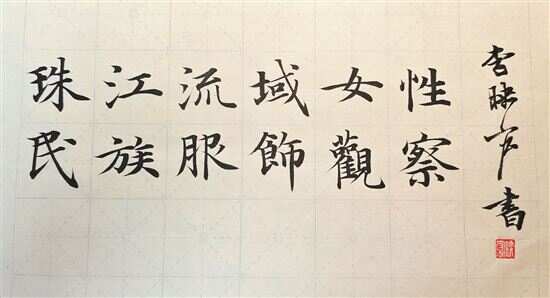 珠江流域女性
民族服飾觀察
書